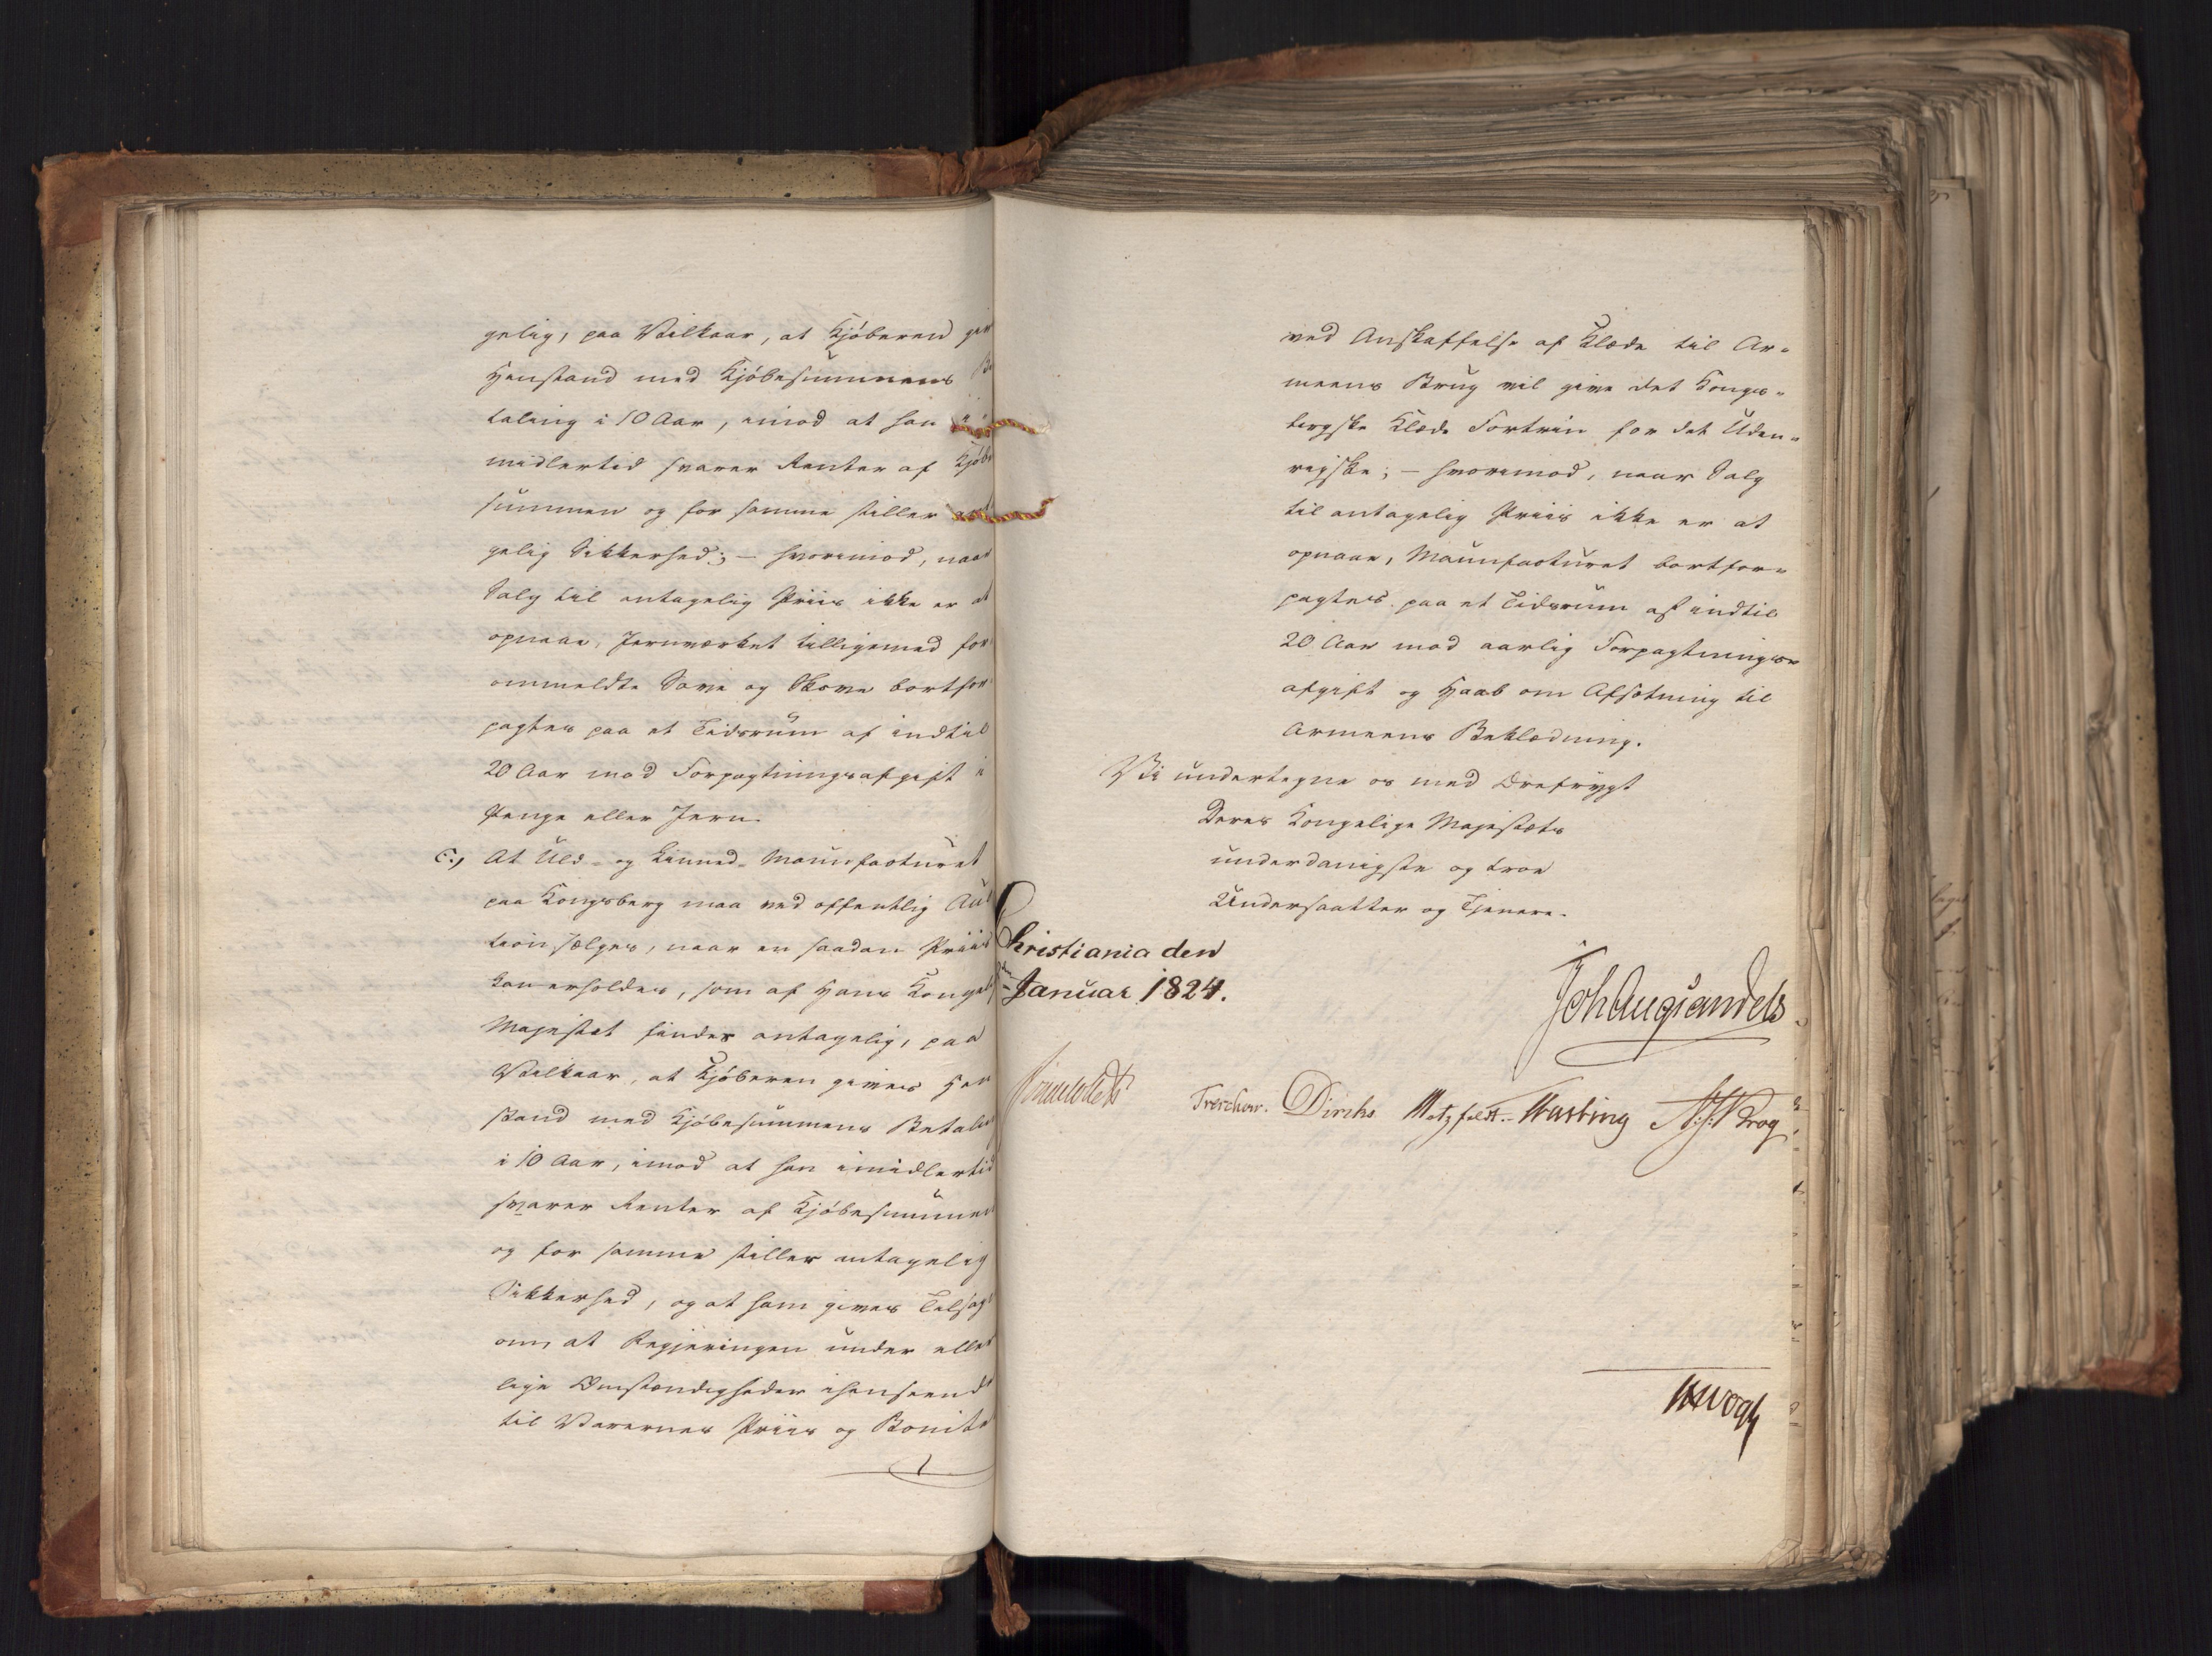 gelig, paa Vilkaar, at Kjöberen giv
Henstand med Kjöbesummens Be
taling i 10 Aar, imod at han
midlertid svarer Renter af Kjöbe
summen og for samme stiller
gelig Sikkerhed; – hvorimod, naar
Salg til antagelig Priis ikke er at
opnaae, Jernværket tilligemed for
ommeldte Save og Skove bortfor
pagtes paa et Tidsrum af indtil
20 Aar mod Forpagtningsafgift i
Penge eller Jern.
C., At Uld- og Linned-Manufacturet
paa Kongsberg maa ved offentlig Auc
tion sælges, naar en saadan Priis
kan erholdes, som af Hans Kongel
Majestæt findes antagelig, paa
Vilkaar, at Kjöberen gives Hen
stand med Kjöbesummens Betaling
i 10 Aar, imod at han imidlertid
svarer Renter af Kjöbesummen
og for samme stiller antagelig
Sikkerhed, og at ham gives Tilsagn
om, at Regjeringen under ellers
lige Omstændigheder ihenseende
til Varernes Priis og Bonite
ved Anskaffelse af Klæde til Ar-
meens Brug vil give det Kongs-
bergske Klæde Fortrin for det Uden-
rigske; – hvorimod, naar Salg
til antagelig Priis ikke er at
opnaae, Manufacturet bortfor-
pagtes paa et Tidsrum af indtil
20 Aar mod aarlig Forpagtnings-
afgift og Haab om Afsætning til
Armeens Beklædning.
Vi undertegne os med Ærefrygt
Deres Kongelige Majestæts
underdanigste og troe
Undersaatter og Tjenere.
Christiania den
Januar 1824.
Joh Aug Sandels
Sommerfeldt Treschow. Diriks Motzfeldt. Fasting A. J. Krog
Vogt